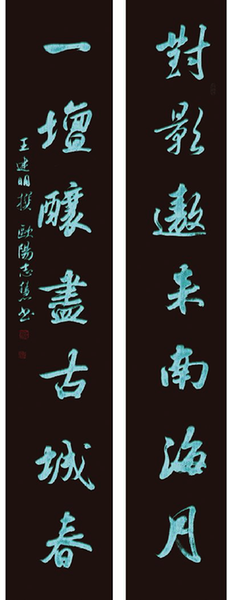 對影邀来南海月
一壇釀盡古城春
王建明撰 歐陽志慧书